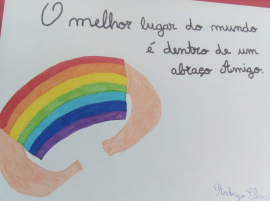 O melhor lugar do mundo
é dentro de um
abraço Amigo.